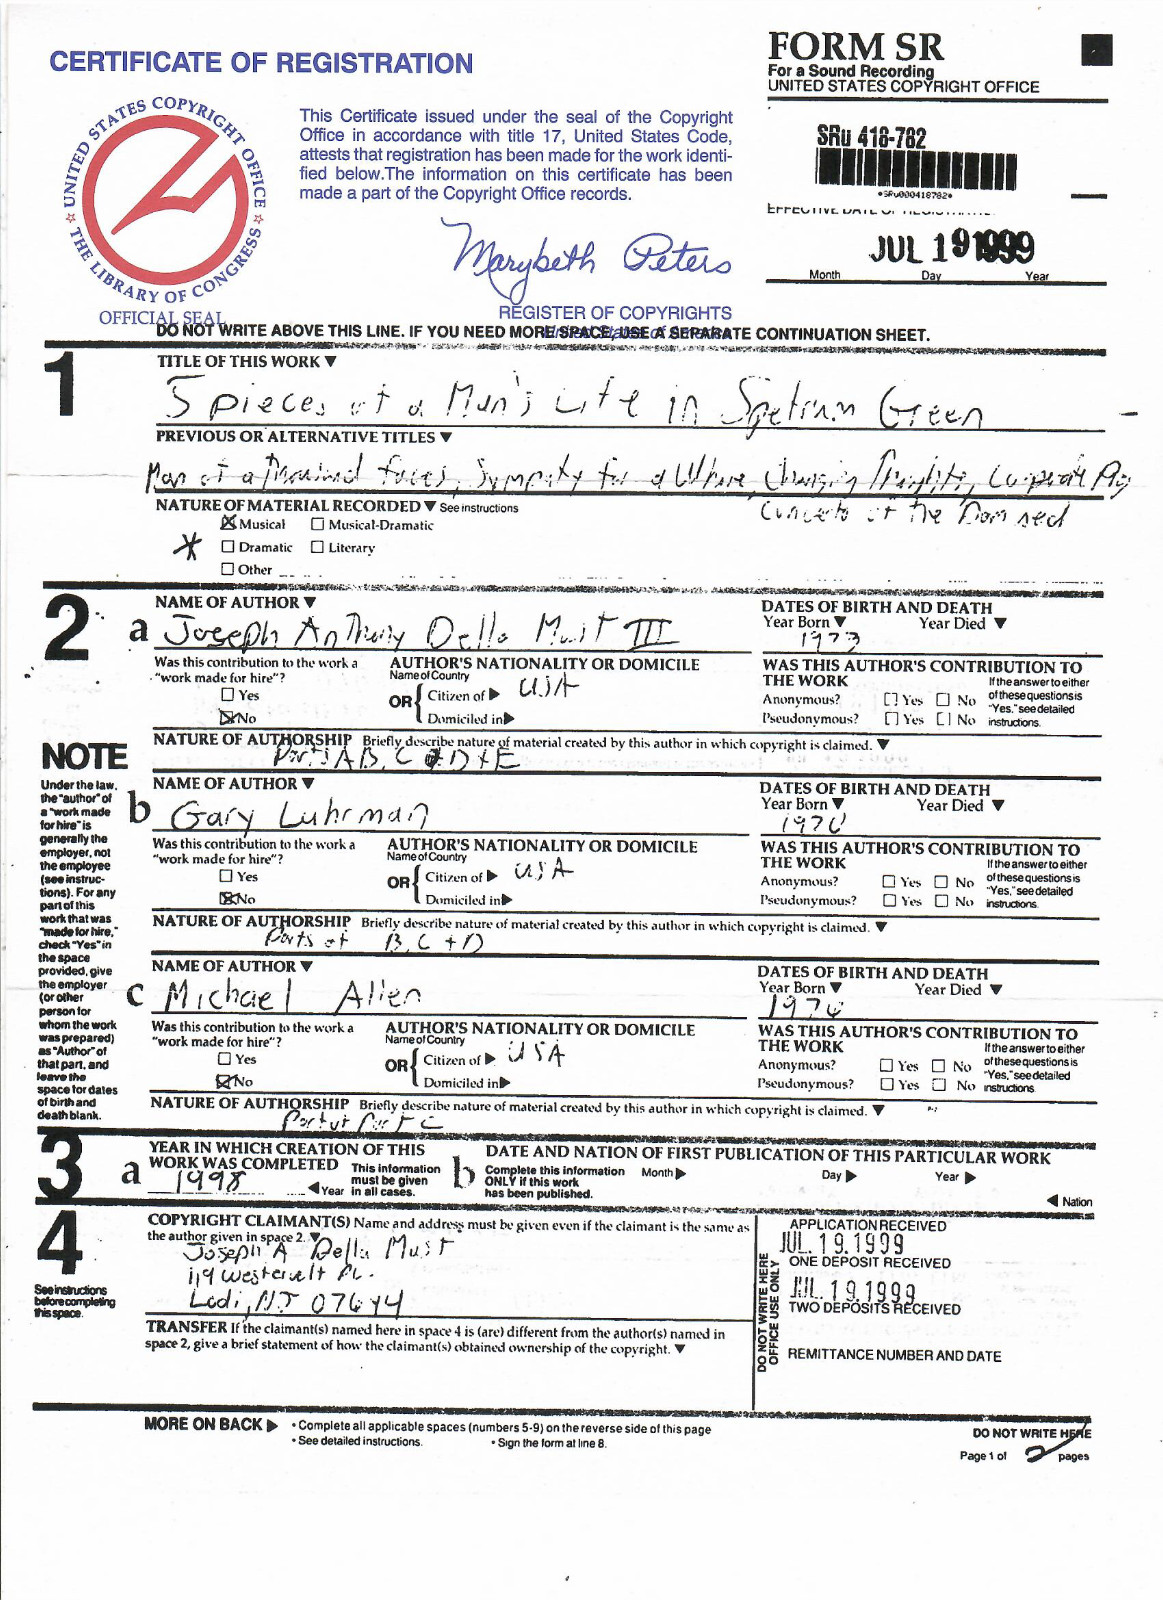 CERTIFICATE OF REGISTRATION
UNITED STATES COPYRIGHT OFFICE
THE LIBRARY OF CONGRESS
OFFICIAL SEAL
This Certificate issued under the seal of the Copyright
Office in accordance with title 17, United States Code,
attests that registration has been made for the work identi-
fied below.The information on this certificate has been
made a part of the Copyright Office records.
Marybeth Peters
REGISTER OF COPYRIGHTS
United States of America
FORM SR
For a Sound Recording
UNITED STATES COPYRIGHT OFFICE
SRu 418-782
*SRu000418782*
EFFECTIVE DATE OF REGISTRATION
JUL 19 1999
Month Day Year
DO NOT WRITE ABOVE THIS LINE. IF YOU NEED MORE SPACE, USE A SEPARATE CONTINUATION SHEET.
1
TITLE OF THIS WORK ▼
5 pieces of a Man's Life in Spetrum Green
PREVIOUS OR ALTERNATIVE TITLES ▼
Man of a Thousand faces, Sympathy for a Whore, Changing Thoughts, Corporate Pig
Concerto of the Damned
NATURE OF MATERIAL RECORDED ▼ See instructions
☒ Musical ☐ Musical-Dramatic
☐ Dramatic ☐ Literary
☐ Other
2
NAME OF AUTHOR ▼
a Joseph Anthony Della Must III
DATES OF BIRTH AND DEATH
Year Born ▼ Year Died ▼
1973
Was this contribution to the work a
"work made for hire"?
☐ Yes
☒ No
AUTHOR'S NATIONALITY OR DOMICILE
Name of Country
OR { Citizen of ▶ USA
Domiciled in ▶
WAS THIS AUTHOR'S CONTRIBUTION TO
THE WORK
Anonymous? ☐ Yes ☐ No
Pseudonymous? ☐ Yes ☐ No
If the answer to either
of these questions is
"Yes," see detailed
instructions.
NATURE OF AUTHORSHIP Briefly describe nature of material created by this author in which copyright is claimed. ▼
Parts A B, C D + E
NOTE
Under the law,
the "author" of
a "work made
for hire" is
generally the
employer, not
the employee
(see instruc-
tions). For any
part of this
work that was
"made for hire,"
check "Yes" in
the space
provided, give
the employer
(or other
person for
whom the work
was prepared)
as "Author" of
that part, and
leave the
space for dates
of birth and
death blank.
NAME OF AUTHOR ▼
b Gary Luhrman
DATES OF BIRTH AND DEATH
Year Born ▼ Year Died ▼
Was this contribution to the work a
"work made for hire"?
☐ Yes
☒ No
AUTHOR'S NATIONALITY OR DOMICILE
Name of Country
OR { Citizen of ▶ USA
Domiciled in ▶
WAS THIS AUTHOR'S CONTRIBUTION TO
THE WORK
Anonymous? ☐ Yes ☐ No
Pseudonymous? ☐ Yes ☐ No
If the answer to either
of these questions is
"Yes," see detailed
instructions.
NATURE OF AUTHORSHIP Briefly describe nature of material created by this author in which copyright is claimed. ▼
Parts of B, C + D
NAME OF AUTHOR ▼
c Michael Allen
DATES OF BIRTH AND DEATH
Year Born ▼ Year Died ▼
Was this contribution to the work a
"work made for hire"?
☐ Yes
☒ No
AUTHOR'S NATIONALITY OR DOMICILE
Name of Country
OR { Citizen of ▶ USA
Domiciled in ▶
WAS THIS AUTHOR'S CONTRIBUTION TO
THE WORK
Anonymous? ☐ Yes ☐ No
Pseudonymous? ☐ Yes ☐ No
If the answer to either
of these questions is
"Yes," see detailed
instructions.
NATURE OF AUTHORSHIP Briefly describe nature of material created by this author in which copyright is claimed. ▼
Part of Part C
3
a YEAR IN WHICH CREATION OF THIS
WORK WAS COMPLETED
1998
◀ Year
This information
must be given
in all cases.
b DATE AND NATION OF FIRST PUBLICATION OF THIS PARTICULAR WORK
Complete this information
ONLY if this work
has been published.
Month ▶ Day ▶ Year ▶
◀ Nation
4
See instructions
before completing
this space.
COPYRIGHT CLAIMANT(S) Name and address must be given even if the claimant is the same as
the author given in space 2. ▼
Joseph A Della Must
119 Westervelt PL.
Lodi, NJ 07644
TRANSFER If the claimant(s) named here in space 4 is (are) different from the author(s) named in
space 2, give a brief statement of how the claimant(s) obtained ownership of the copyright. ▼
DO NOT WRITE HERE
OFFICE USE ONLY
APPLICATION RECEIVED
JUL. 19. 1999
ONE DEPOSIT RECEIVED
JUL. 19. 1999
TWO DEPOSITS RECEIVED
REMITTANCE NUMBER AND DATE
MORE ON BACK ▶
• Complete all applicable spaces (numbers 5-9) on the reverse side of this page
• See detailed instructions. • Sign the form at line 8.
DO NOT WRITE HERE
Page 1 of 2 pages